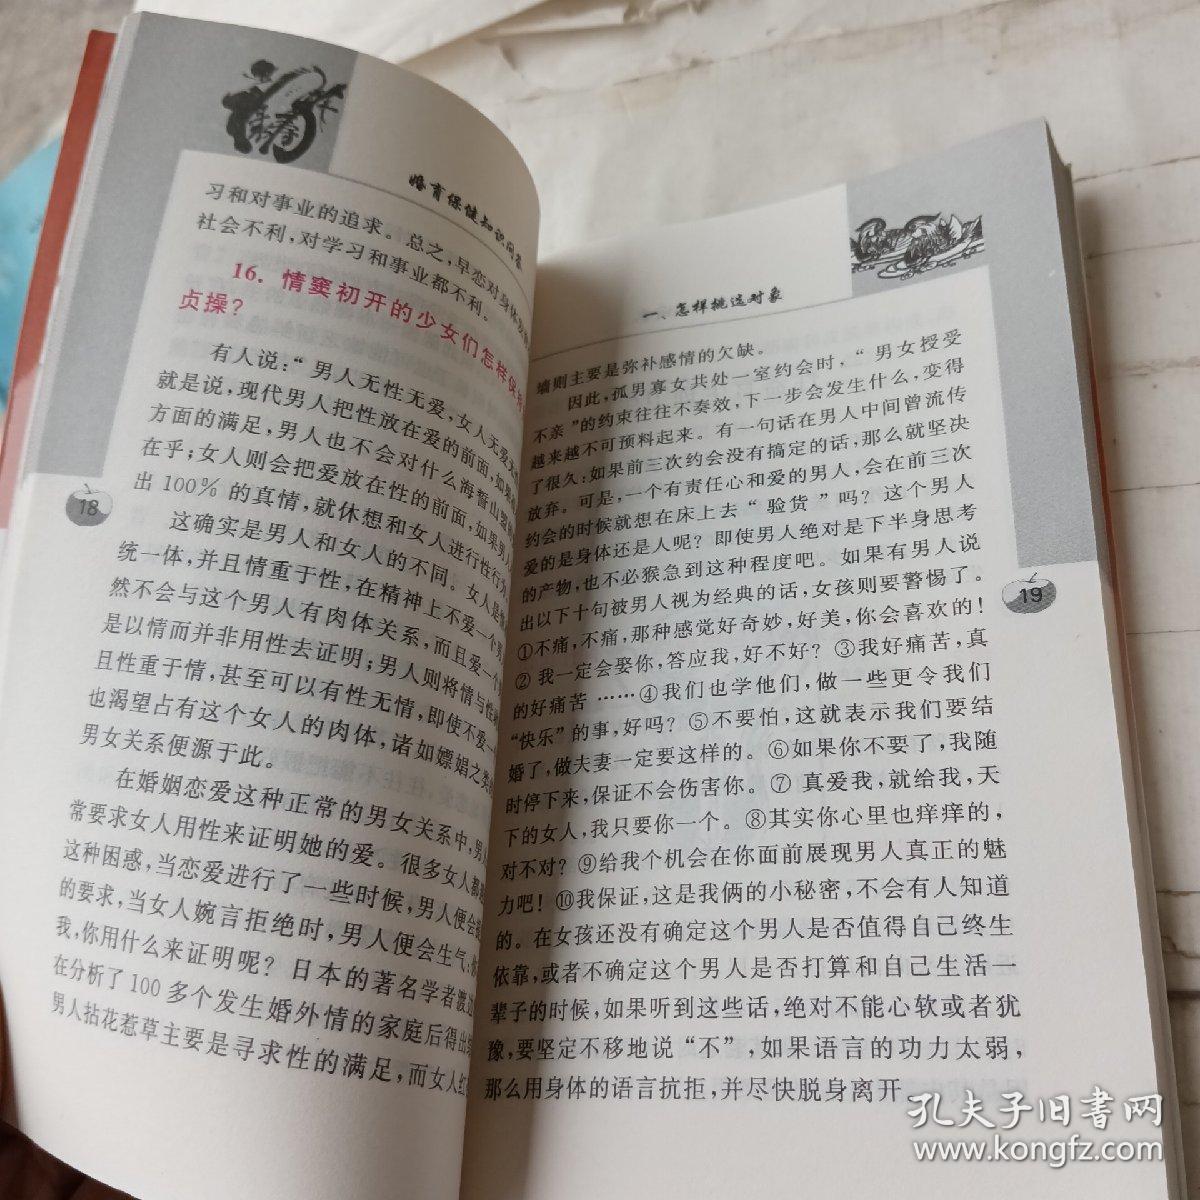 青春
婚育保健知识问答
习和对事业的追求。总之,早恋对身体
社会不利,对学习和事业都不利。
16. 情窦初开的少女们怎样保
贞操?
有人说:“男人无性无爱,女人无爱
就是说,现代男人把性放在爱的前面,如果
方面的满足,男人也不会对什么海誓山盟
在乎;女人则会把爱放在性的前面,如果男人
出100%的真情,就休想和女人进行性行
这确实是男人和女人的不同。女人是
统一体,并且情重于性,在精神上不爱一个男
然不会与这个男人有肉体关系,而且爱一个
是以情而并非用性去证明;男人则将情与性
且性重于情,甚至可以有性无情,即使不爱一
也渴望占有这个女人的肉体,诸如嫖娼之类
男女关系便源于此。
在婚姻恋爱这种正常的男女关系中,男人
常要求女人用性来证明她的爱。很多女人都
这种困惑,当恋爱进行了一些时候,男人便会
的要求,当女人婉言拒绝时,男人便会生气:
我,你用什么来证明呢?日本的著名学者渡
在分析了100多个发生婚外情的家庭后得出
男人拈花惹草主要是寻求性的满足,而女人红
18
一、怎样挑选对象
墙则主要是弥补感情的欠缺。
因此,孤男寡女共处一室约会时,“男女授受
不亲”的约束往往不奏效,下一步会发生什么,变得
越来越不可预料起来。有一句话在男人中间曾流传
了很久:如果前三次约会没有搞定的话,那么就坚决
放弃。可是,一个有责任心和爱的男人,会在前三次
约会的时候就想在床上去“验货”吗?这个男人
爱的是身体还是人呢?即使男人绝对是下半身思考
的产物,也不必猴急到这种程度吧。如果有男人说
出以下十句被男人视为经典的话,女孩则要警惕了。
①不痛,不痛,那种感觉好奇妙,好美,你会喜欢的!
②我一定会娶你,答应我,好不好?③我好痛苦,真
的好痛苦……④我们也学他们,做一些更令我们
“快乐”的事,好吗?⑤不要怕,这就表示我们要结
婚了,做夫妻一定要这样的。⑥如果你不要了,我随
时停下来,保证不会伤害你。⑦真爱我,就给我,天
下的女人,我只要你一个。⑧其实你心里也痒痒的,
对不对?⑨给我个机会在你面前展现男人真正的魅
力吧!⑩我保证,这是我俩的小秘密,不会有人知道
的。在女孩还没有确定这个男人是否值得自己终生
依靠,或者不确定这个男人是否打算和自己生活一
辈子的时候,如果听到这些话,绝对不能心软或者犹
豫,要坚定不移地说“不”,如果语言的功力太弱,
那么用身体的语言抗拒,并尽快脱身离开。
19
孔夫子旧书网
www.kongfz.com